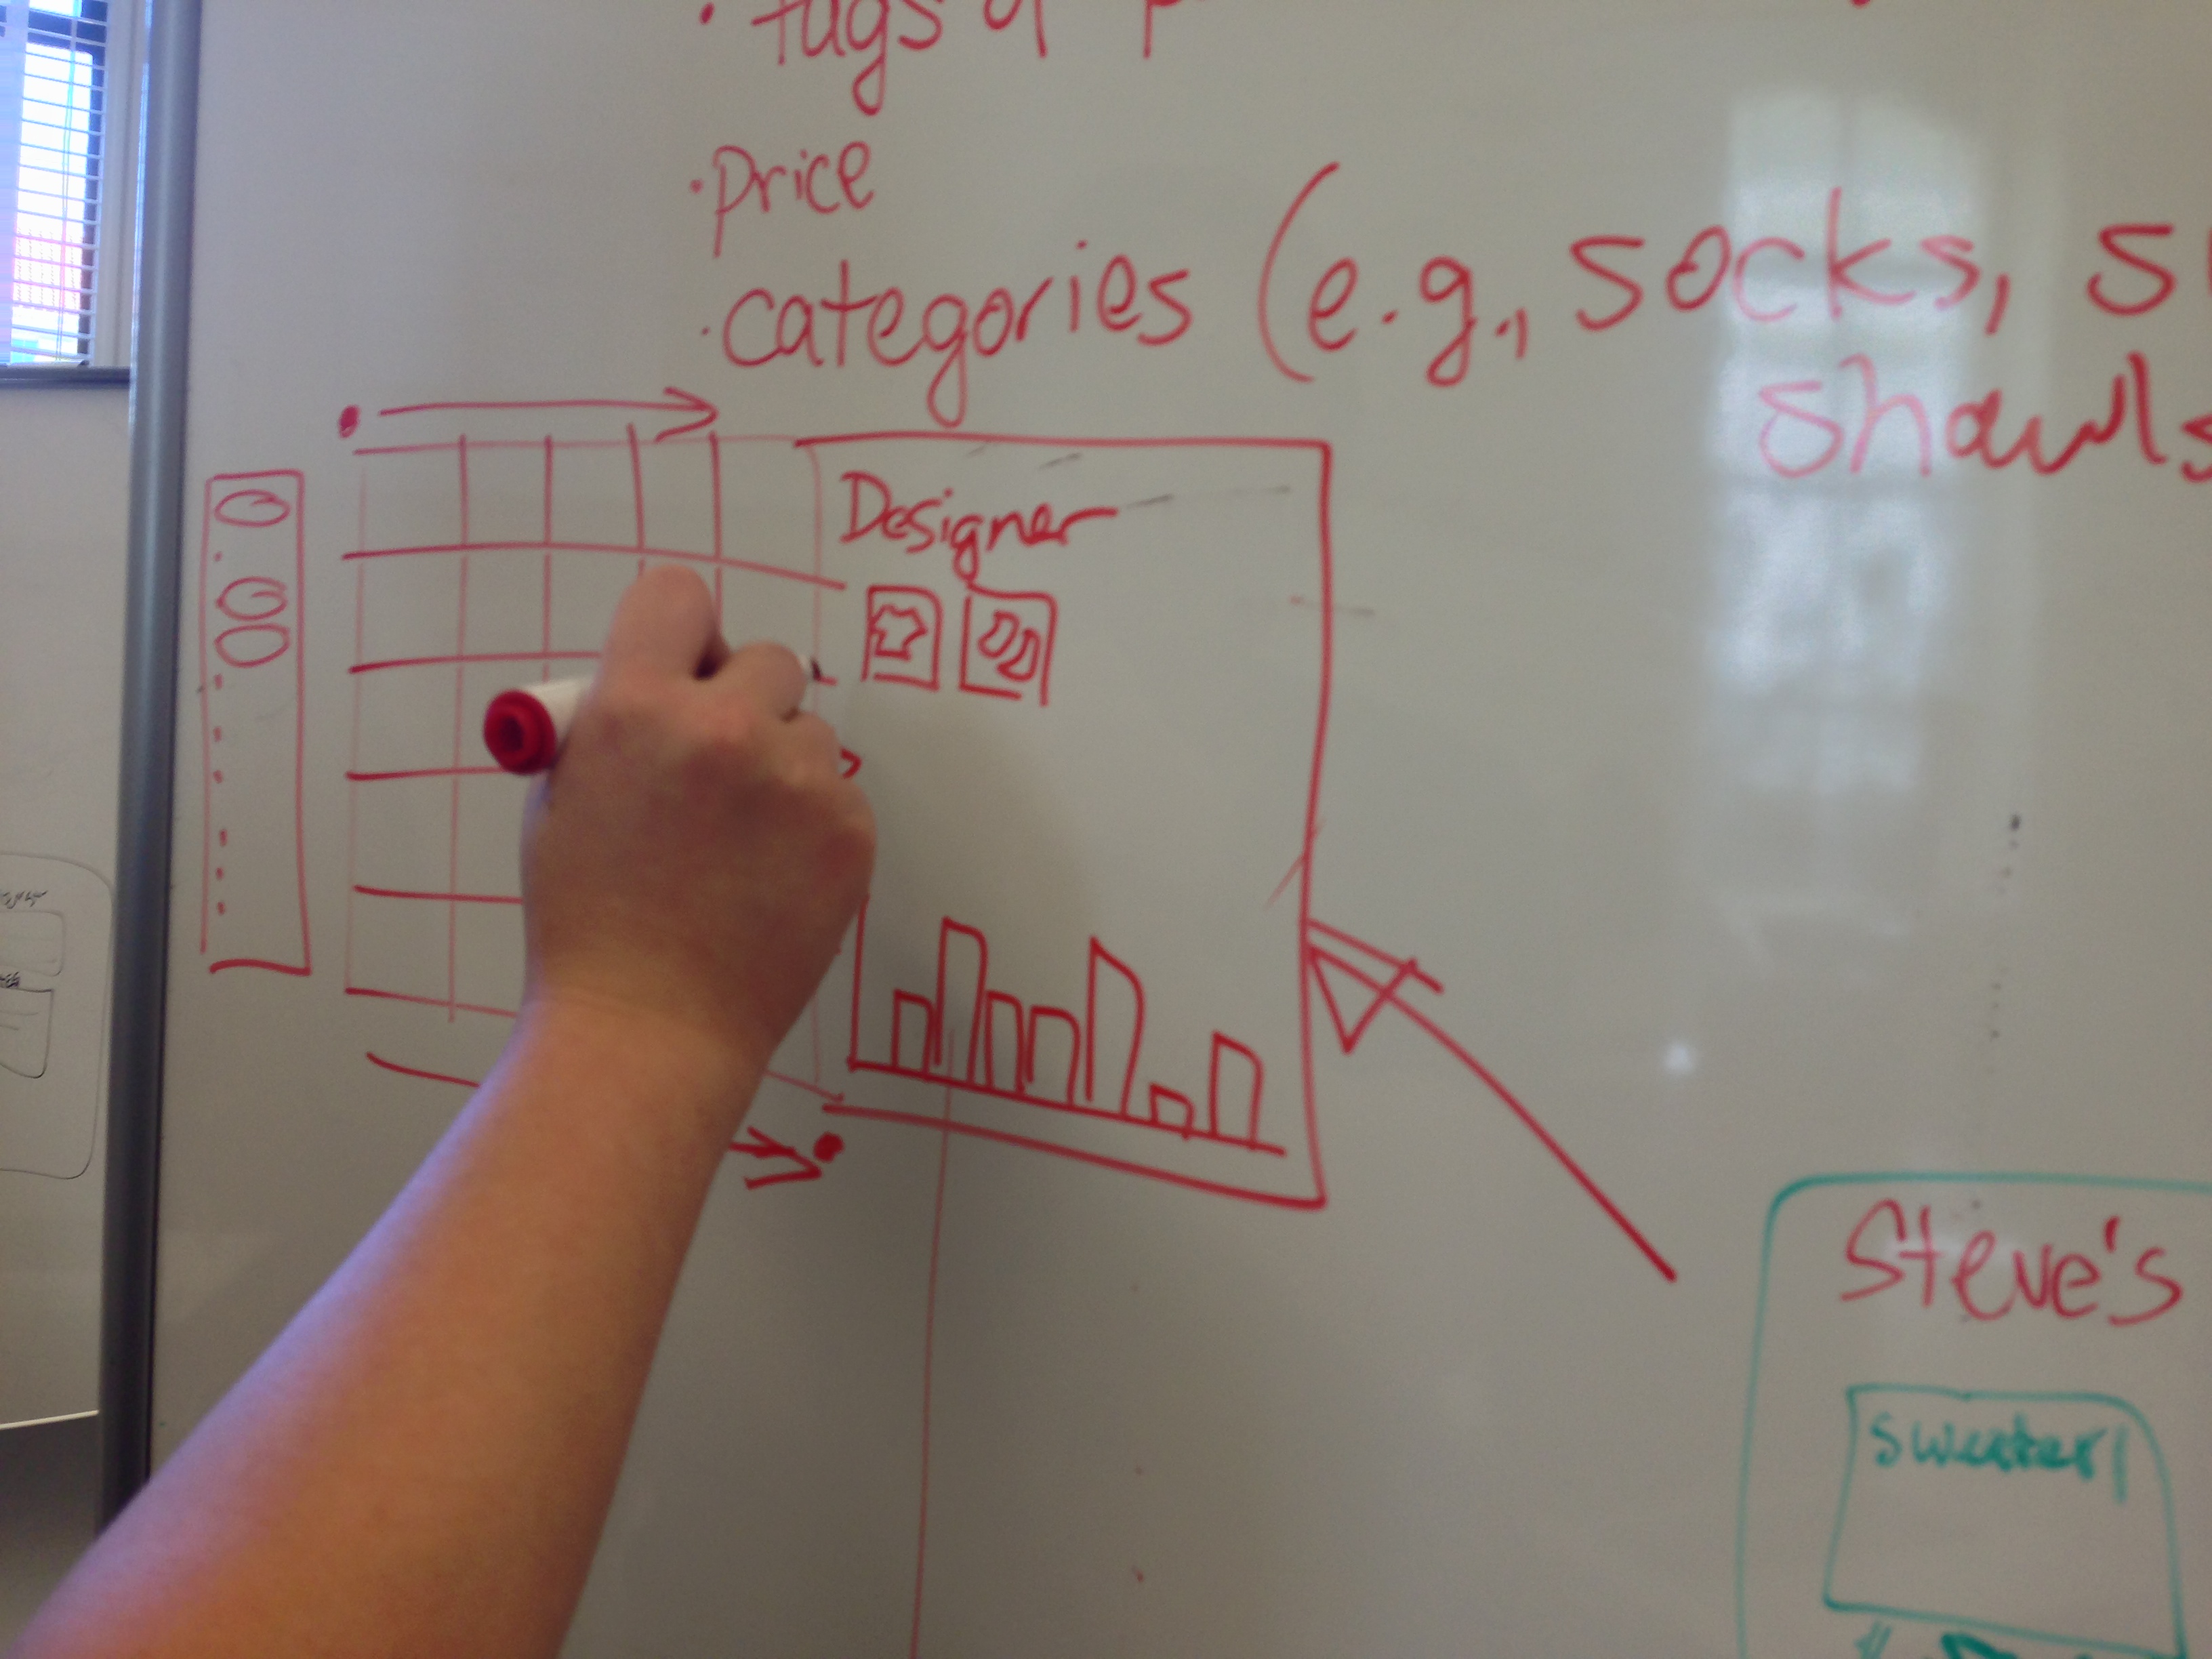 · tags of
· price
· categories (e.g., socks,
shawls
Designer
Steve's
sweater 1